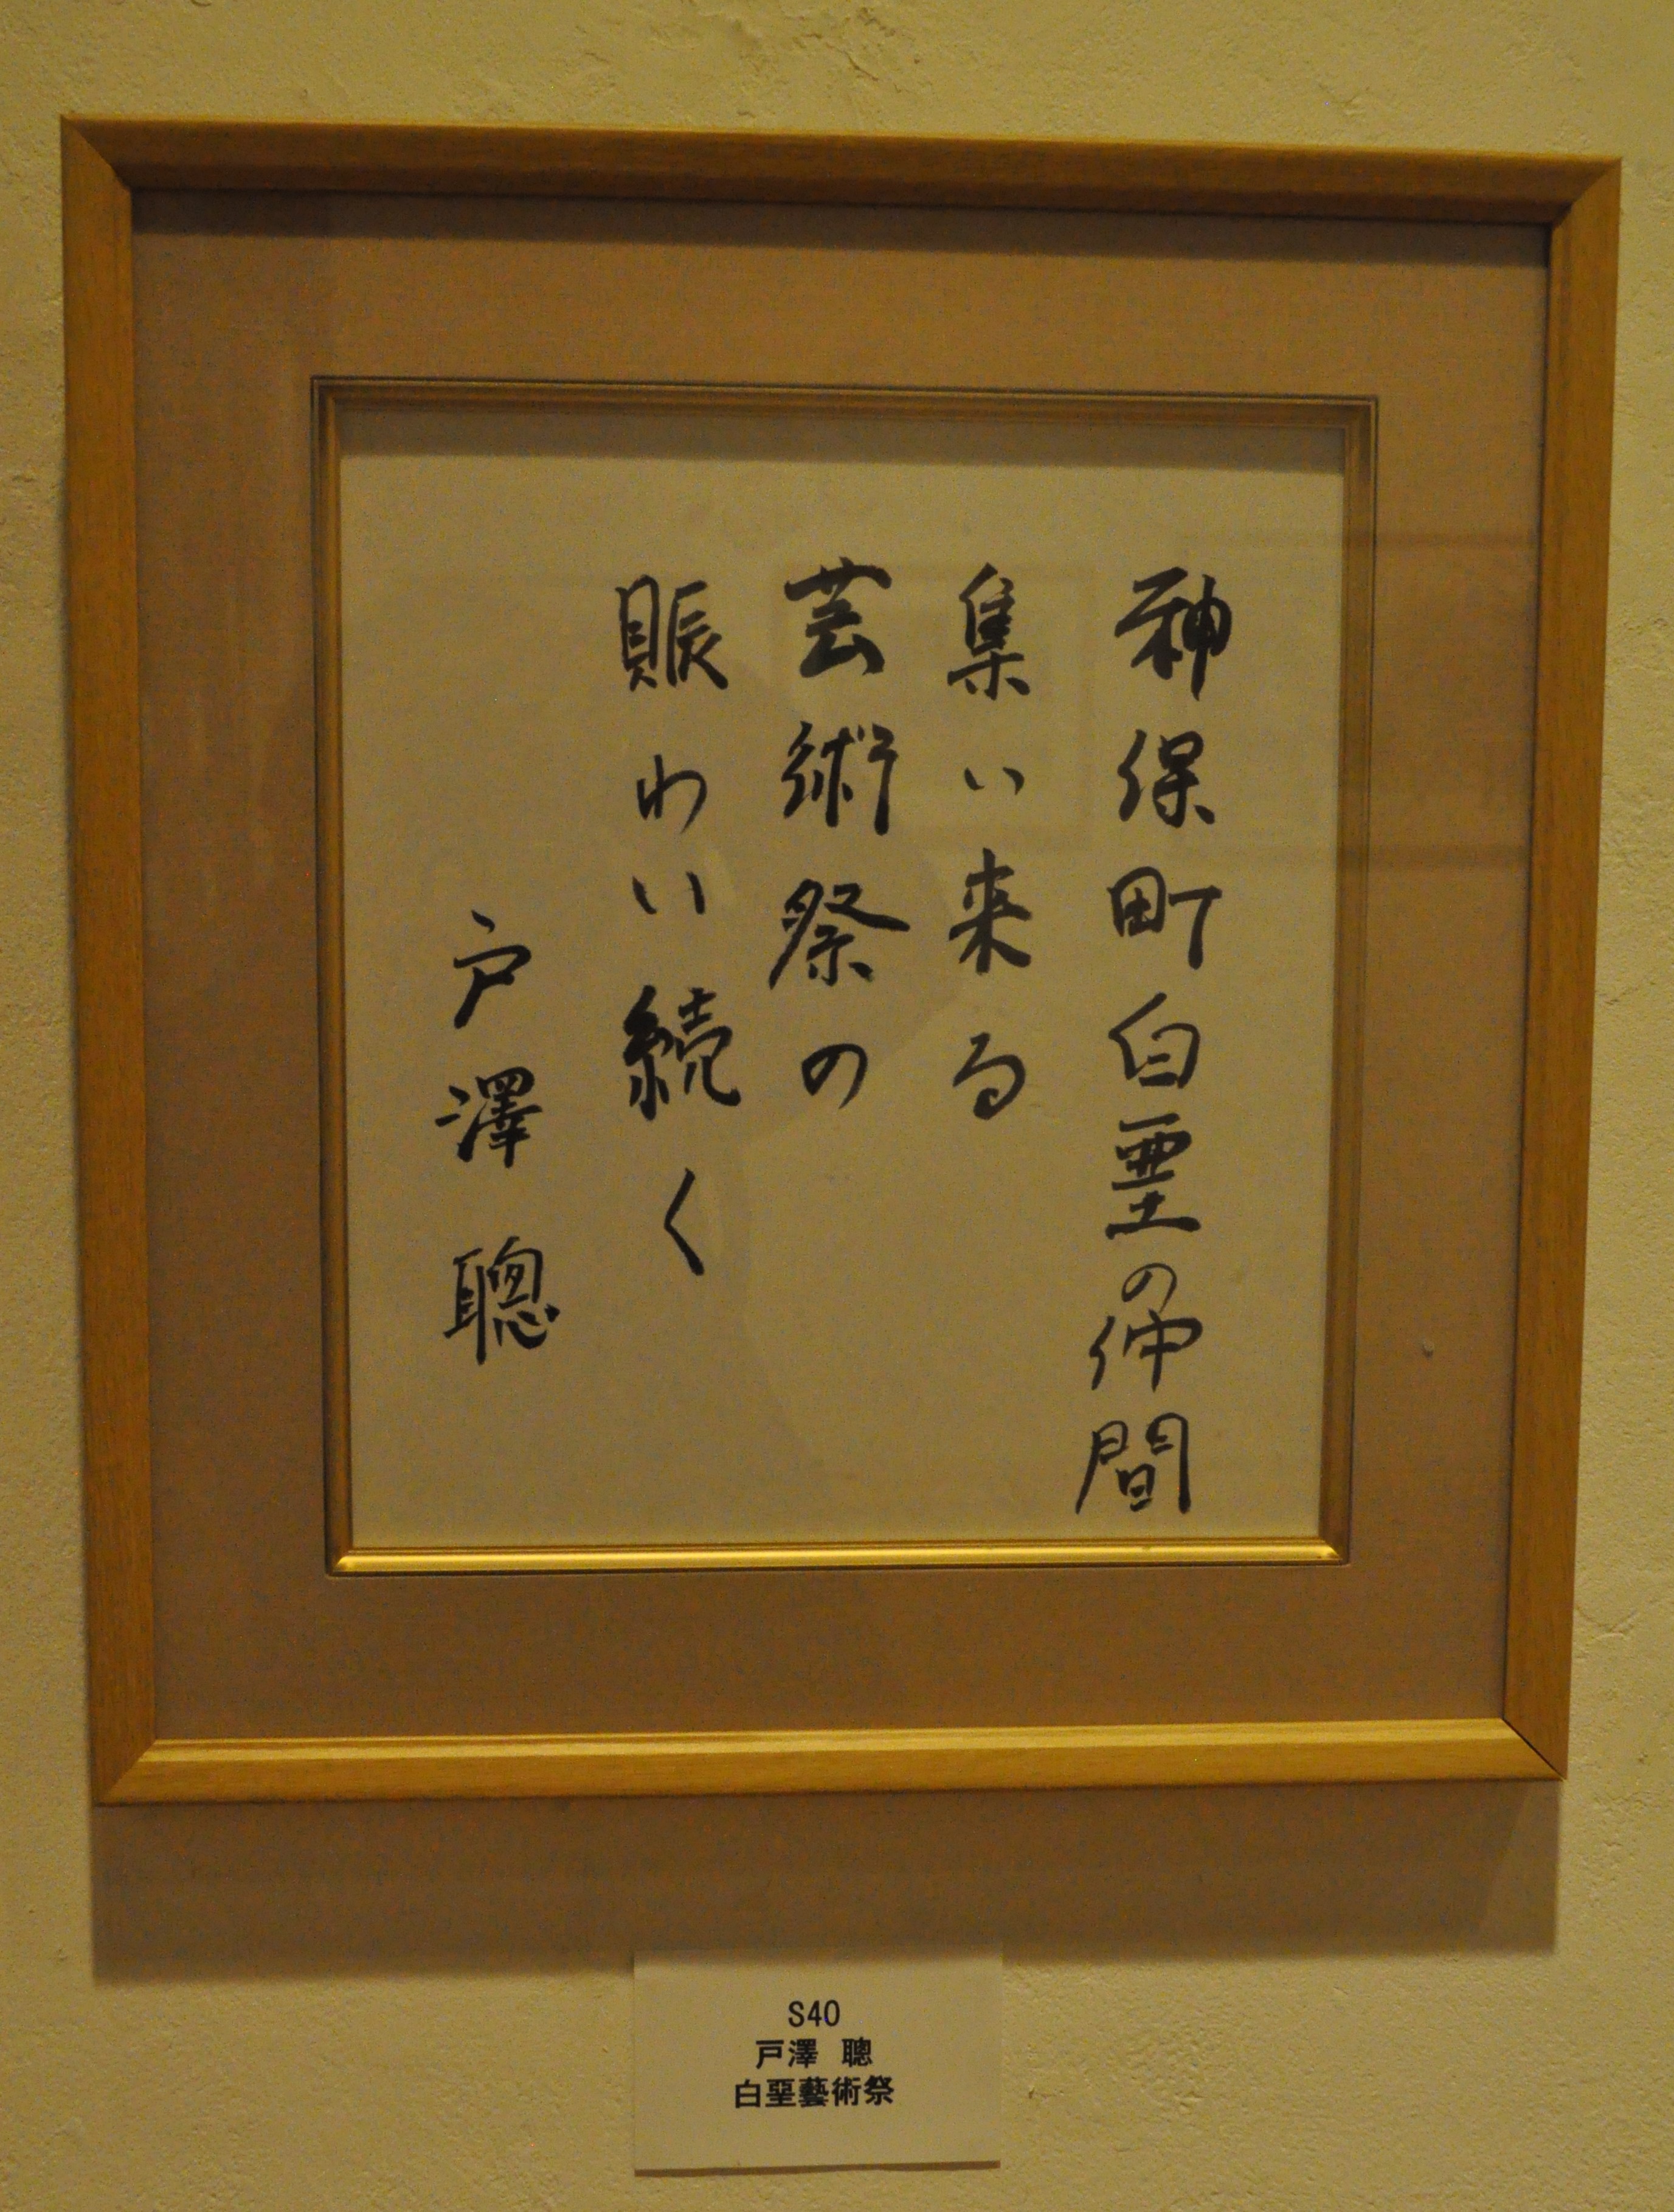 神保町白堊の仲間
集い来る
芸術祭の
賑わい続く
戸澤聰
S40
戸澤 聰
白堊藝術祭